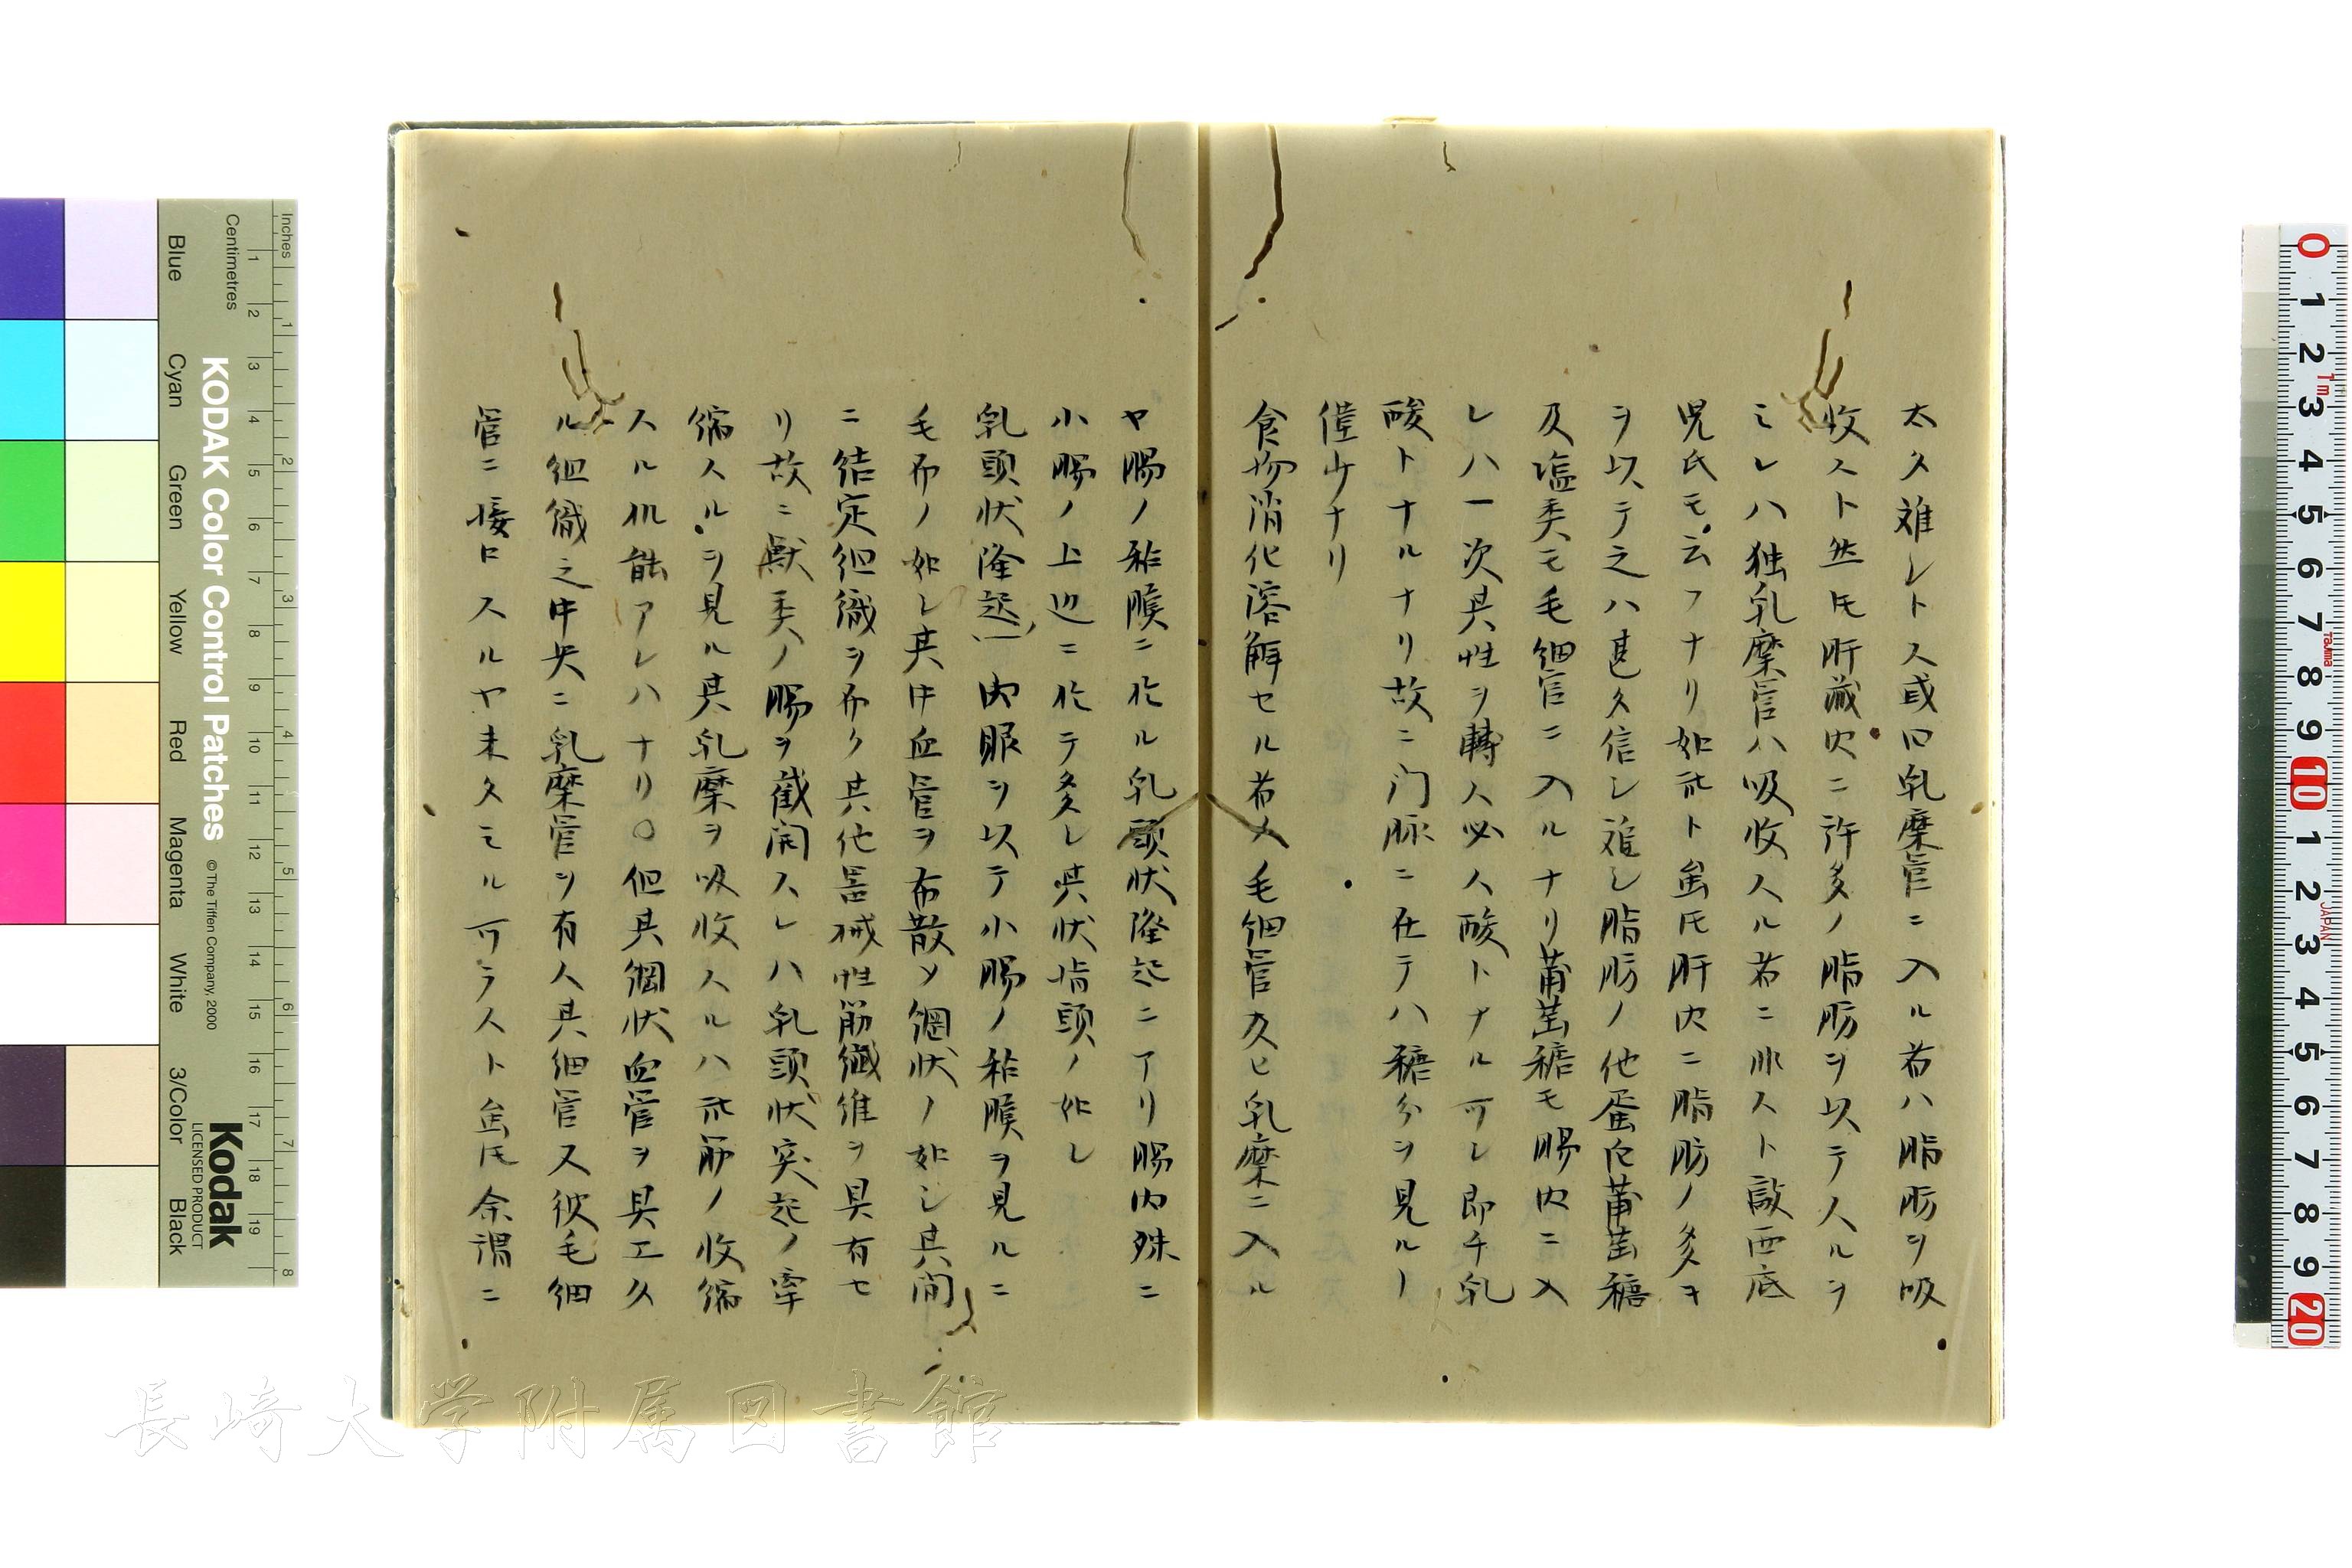 太タ难レトス或曰乳糜管ニ入ル者ハ脂肪ヲ吸
收スト然𪜈肝蔵内ニ許多ノ脂肪ヲ以テ人ルヲ
ミレハ独乳糜管ハ吸收スル者ニ非スト
児氏モ云フナリ如ト𪜈肝内ニ脂肪ノ多ヲ
ヲ以テ之ハ甚タ信シ难シ脂肪ノ他蛋白葡萄糖
及塩类モ毛細管ニ入ルナリ葡萄糖モ腸内ニ入
レハ一次其性ヲ轉人必人酸トナル可レ即チ乳
酸トナルナリ故ニ门脉ニ在テハ糖分ヲ見ルヿ
僅少ナリ
食物消化溶解セル者〆毛細管及ヒ乳糜ニ入ル
ヤ腸ノ粘膜ニ於ル乳頭状隆起ニアリ腸内殊ニ
小腸ノ上辺ニ於テ多シ其状指頭ノ如シ
乳頭状隆起 肉眼ヲ以テ小腸ノ粘膜ヲ見ルニ
毛布ノ如レ其中血管ヲ布散〆網状ノ如シ其間
ニ结定组織ヲ布ク其他器械性筋纖維ヲ具有セ
リ故ニ獣类ノ腸ヲ截開スレハ乳頭状突起ノ牽
縮スルヲ見ル其乳糜ヲ吸收スルハ筋ノ收縮
スル机能アレハナリ○但其網状血管ヲ具エタ
ル组織之中央ニ乳糜管ヲ有人其细管又彼毛细
管ニ接口スルヤ未タミル可ラスト𪜈余謂ニ
KODAK Color Control Patches
© The Tiffen Company, 2000
Kodak
LICENSED PRODUCT
Inches
Centimetres
Blue
Cyan
Green
Yellow
Red
Magenta
White
3/Color
Black
長崎大学附属図書館